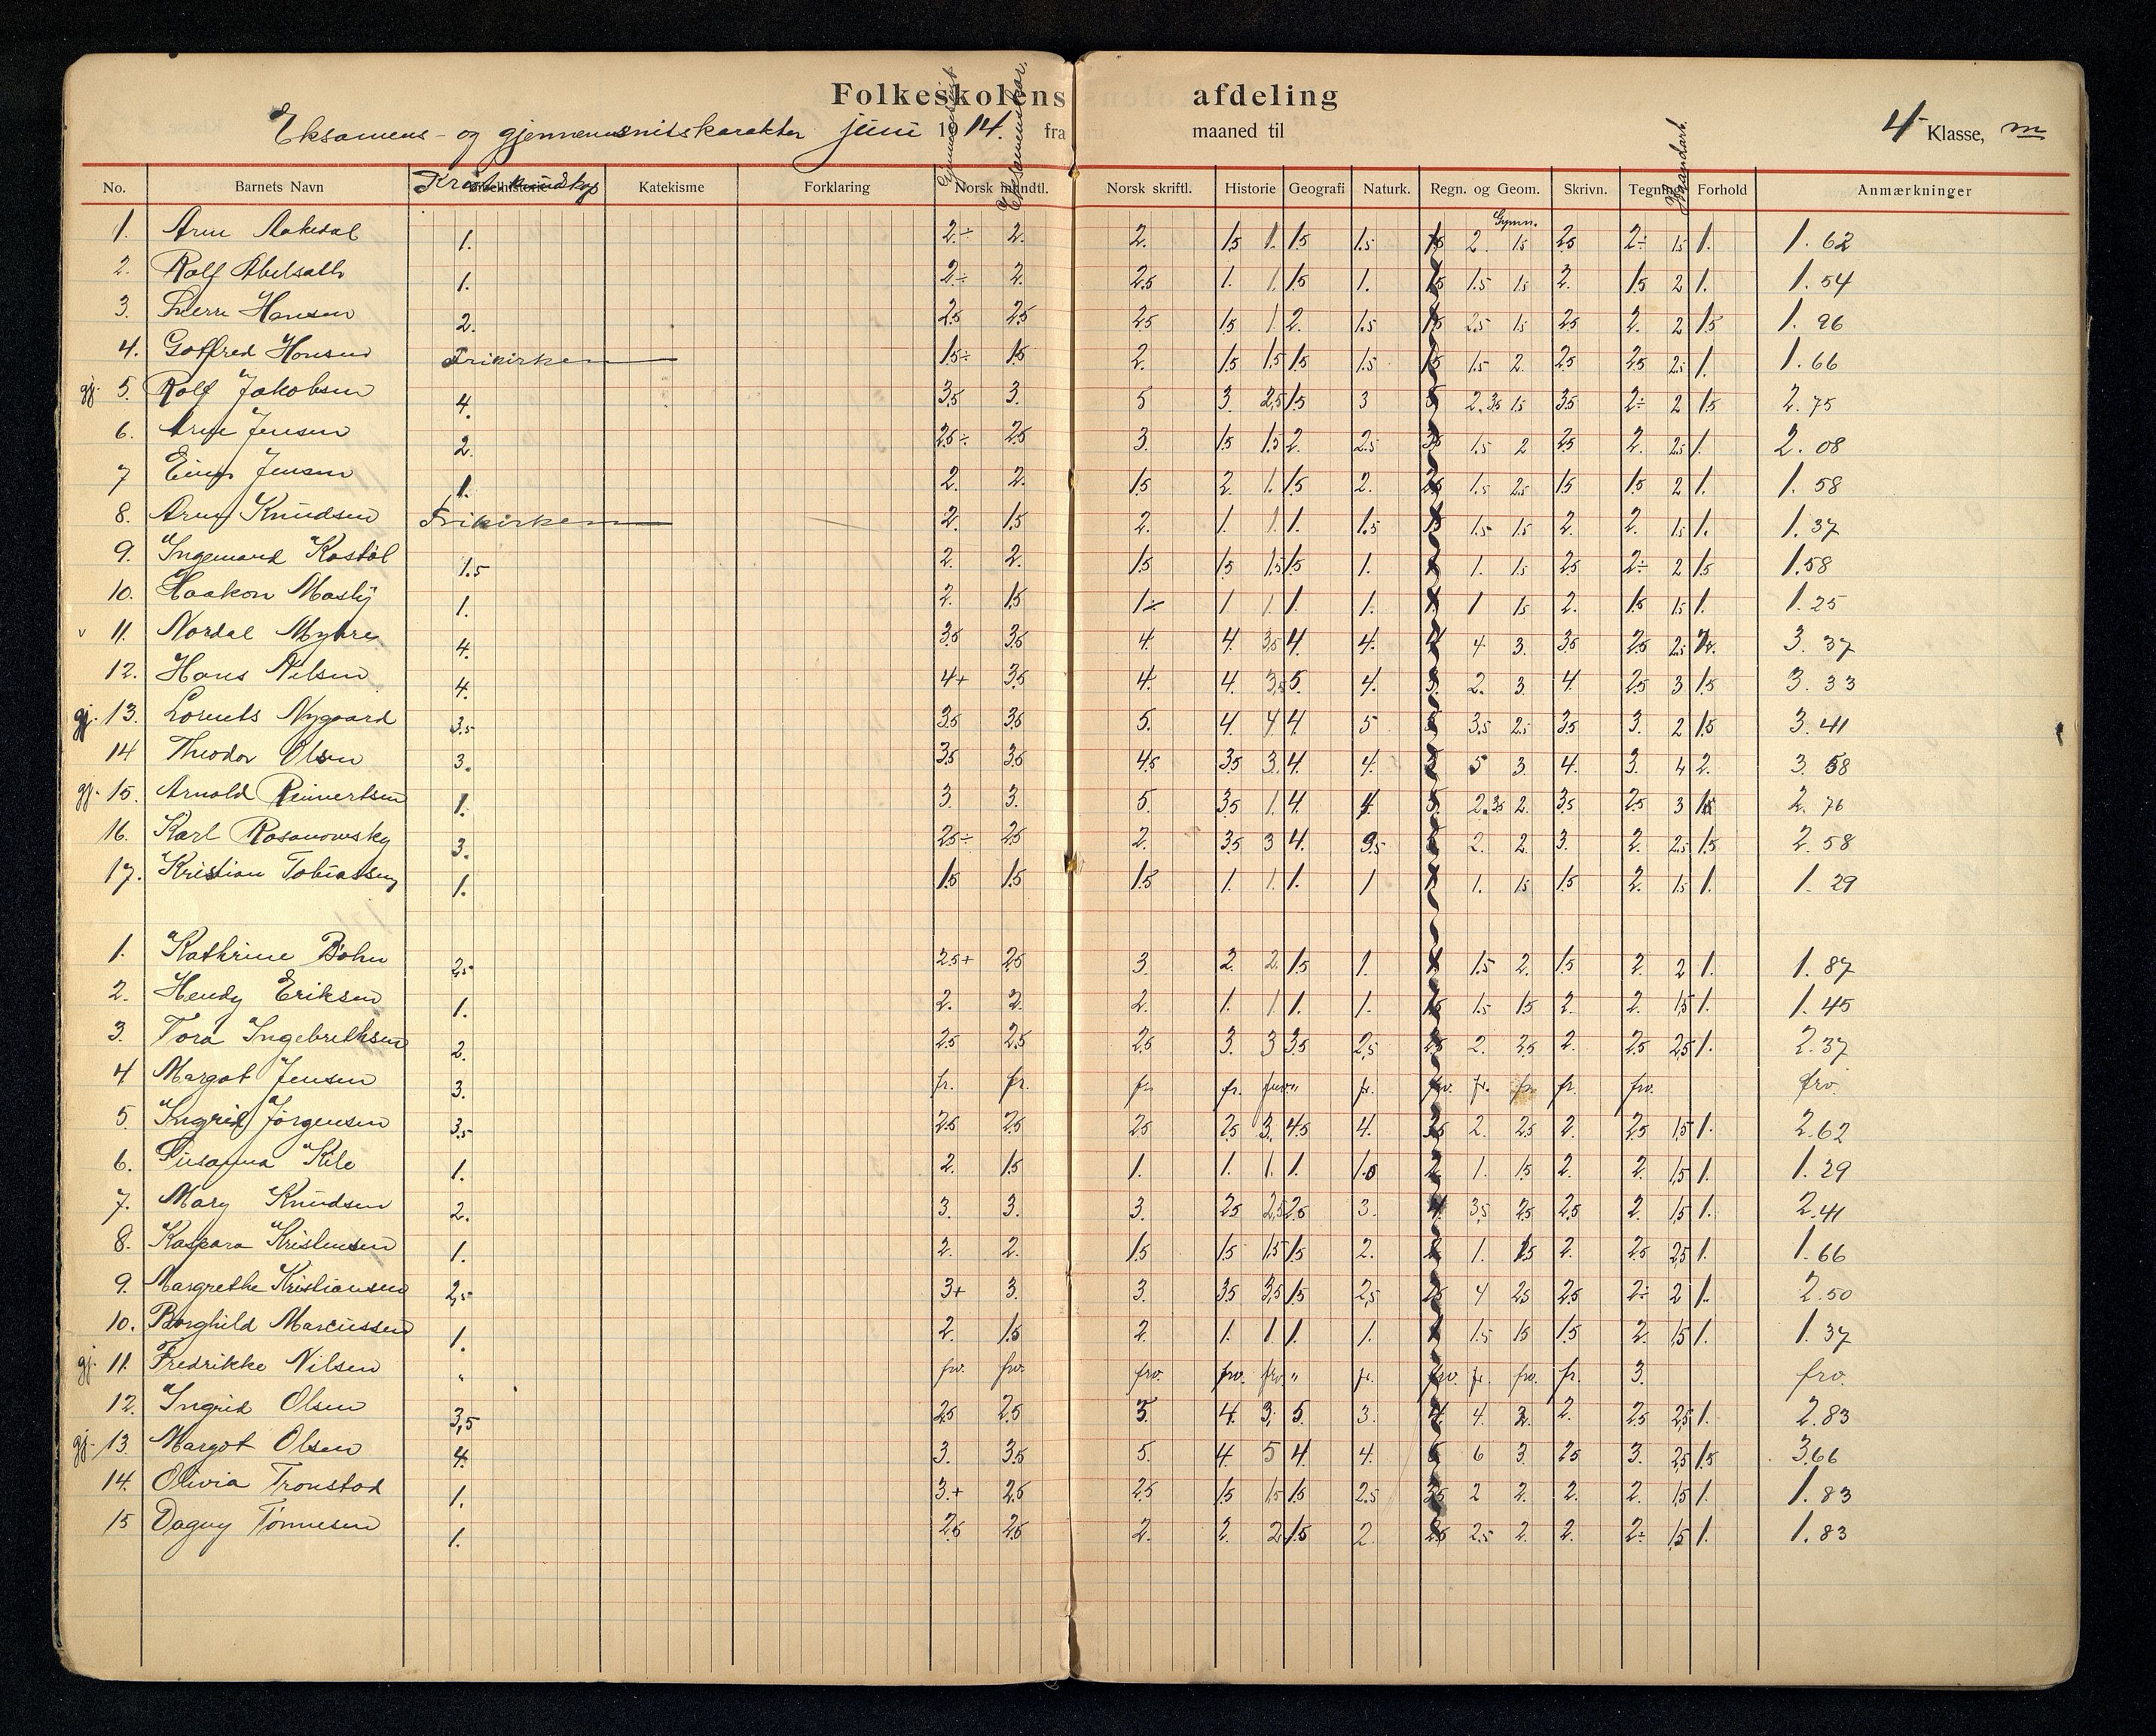 Folkeskolens afdeling
Eksamens- og gjennemsnitskarakter juni 1914. fra maaned til 4 Klasse, m
No. Barnets Navn Krist. kundskap Katekisme Forklaring Norsk mundtl. Eksamenskar. Norsk skriftl. Historie Geografi Naturk. Regn. og Geom. Skrivn. Tegning Haandarb. Forhold Anmærkninger
Gymn.
1. Arne Aakedal 1. 2.÷ 2. 2. 1.5 1. 1.5 1.5 1.5 2. 1.5 2.5 2÷ 1.5 1. 1.62
2. Rolf Abelseth 1. 2÷ 2. 2.5 1. 1. 1.5 1. 1.5 1.5 1.5 2. 1.5 2 1. 1.54
3. Hansen 2. 2.5 2.5 2.5 1.5 1. 2. 1.5 1.5 2.5 1.5 2.5 2. 2 1.5 1.96
4. Gotfred Hansen Frikirken 1.5÷ 1.5 2. 1.5 1.5 1.5 1.5 1.5 1.5 2. 2.5 2.5 2.5 1. 1.66
gj. 5. Rolf Jakobsen 4. 3.5 3. 5 3. 2.5 1.5 3 5 2. 3.5 1.5 3.5 2÷ 2 1.5 2.75
6. Arne Jensen 2. 2.5÷ 2.5 3. 1.5 1.5 2. 2.5 3.5 1.5 2 2.5 2. 2.5 1. 2.08
7 Jensen 1. 2. 2. 1.5 2. 1. 1.5 2. 2.5 1.5 2.5 1.5 1.5 2 1. 1.58
8. Arne Knudsen Frikirken 2. 1.5 2. 1. 1. 1. 1.5 1.5 1.5 1.5 2. 2. 1.5 1. 1.37
9. Ingemard Kostøl 1.5 2. 2. 1.5 1.5 1.5 1.5 1. 1. 1.5 2.5 2÷ 2 1.5 1.58
10. Haakon Mosby 1. 2. 1.5 1÷ 1 1. 1. 1. 1 1.5 2. 1.5 1.5 1. 1.25
v 11. Nordal Myhre 4. 3.5 3.5 4. 4. 3.5 4. 4. 4 4 3. 3.5 2.5 2.5 3.37
12. Hans Nilsen 4. 4+ 3.5 4. 4. 3.5 5. 4. 3. 2. 3. 4. 2.5 3 1.5 3.33
gj. 13. Lorents Nygaard 3.5 3.5 3.5 5. 4 4 4 5 5 3.5 2.5 3.5 3. 2 1.5 3.41
14 Theodor Olsen 3. 3.5 3.5 4.5 3.5 3. 4. 4. 5 3. 4. 3. 4 2. 3.58
gj. 15. Arnold Reinertsen 1. 3. 3. 5. 3.5 1. 4 4. 5. 2. 3.5 2. 3.5 2.5 3 1.5 2.76
16. Karl Rosanowsky 3. 2.5÷ 2.5 2. 3.5 3 4. 2. 2. 3. 2. 2.5 1.5 2.58
17. Kristian Tobiassen 1. 1.5 1.5 1.5 1. 1. 1. 1 1 1. 1.5 1.5 2. 1.5 1. 1.29
1. Kathrine Bøhn 2.5 2.5+ 2.5 3 2. 2. 1.5 1. 1 1.5 2. 1.5 2. 2 1. 1.87
2. Hendy Eriksen 1. 2. 2. 2. 1. 1 1. 1. 1.5 1.5 1.5 2. 2. 1.5 1. 1.45
3. Tora Ingebrethsen 2. 2.5 2.5 2.5 3. 3 3.5 2.5 2.5 2. 2.5 2. 2.5 2.5 1. 2.37
4 Margot Jensen 3. fr. fr. fr. fr. " fr. frv. fr. fr. fr. frv. frv.
5. Ingrid Jørgensen 3.5 2.5 2.5 2.5 2.5 3. 4.5 4. 3.5 2. 2.5 2. 2.5 1.5 1. 2.62
6. Susanna Kile 1. 2. 1.5 1. 1. 1. 1. 1.5 2 1. 1.5 2. 2. 1.5 1. 1.29
7. Mary Knudsen 2. 3. 3. 3. 2.5 2.5 2.5 3. 4. 3.5 2.5 2.5 2. 1.5 1. 2.41
8. Kaspara Kristensen 1. 2. 2. 1.5 1.5 1.5 1.5 2. 2 1. 1.5 2. 2.5 2.5 1. 1.66
9. Margrethe Kristiansen 2.5 3+ 3. 3. 3.5 3.5 1.5 2.5 2.5 4 2.5 2.5 2÷ 2 1. 2.50
10. Borghild Marcussen 1. 2. 1.5 2. 1. 1. 1. 1. 1 1.5 1.5 1.5 2. 1.5 1. 1.37
gj. 11. Fredrikke Nilsen " frv. frv. frv. frv. frv. " fr. frv. fr. frv. fr. 3. frv.
12. Ingrid Olsen 3,5 2.5 2.5 5. 4. 3. 5. 3. 4. 4. 2. 2. 2.5 2.5 1. 2.83
gj. 13. Margot Olsen 4. 3. 3.5 5. 4 5 4. 4. 6 6 3. 2.5 3. 2.5 1.5 3.66
14. Olivia Tronstad 1. 3.+ 2.5 2.5 1.5 1.5 1.5 2.5 3.5 2 2. 2. 2. 1.5 1. 1.83
15 Dagny Tønnesen 1. 2.5 2.5 2. 2. 2 1.5 2. 2.5 2.5 2. 2. 2÷ 1.5 1. 1.83